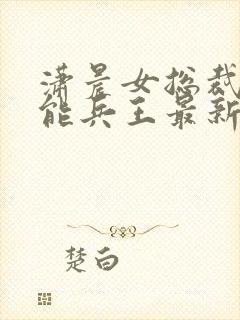 潇晨女总裁
能兵王最新
楚白